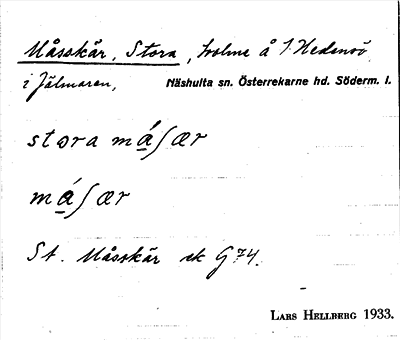 Måsskär, Stora, holme å S. Hedensö
i Jälmaren, Näshulta sn. Österrekarne hd. Söderm. l.
stora má̱ʃær
má̱ʃær
St. Måsskär ek G 74.
LARS HELLBERG 1933.